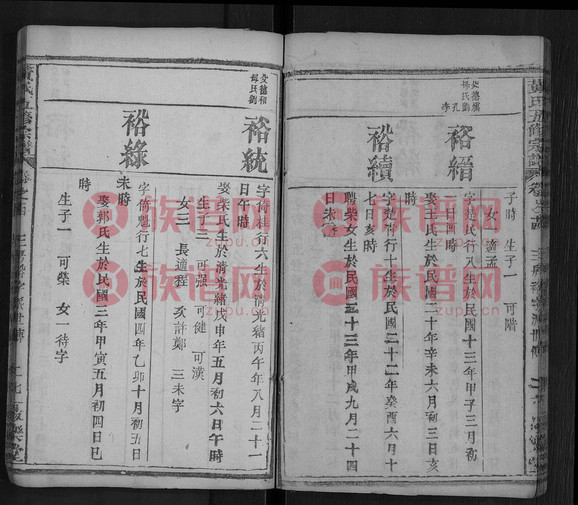 黃氏五修宗譜
子時 生子一 可階
女一 適孟
父德積
母氏劉 孔 李
裕縉
字楚民行八生於民國十三年甲子三月初
七日酉時
娶王氏生於民國二十年辛未六月初三日亥
時
裕續
字楚荷行十生於民國二十二年癸酉六月十
七日亥時
聘柴女生於民國二十三年甲戌九月二十四
日未時
父德和
母氏劉
裕統
字荷桂行六生於清光緒丙午年八月二十一
日午時
娶柴氏生於清光緒戊申年五月初六日午時
生子三 可强 可健 可漢
女三 長適程 次許鄭 三未字
裕綠
字荷魁行七生於民國四年乙卯十月初五日
未時
娶郭氏生於民國三年甲寅五月初四日巳
時
生子一 可柴 女一待字
黃氏五修宗譜
族谱网
zupu.cn
族谱网
zupu.cn